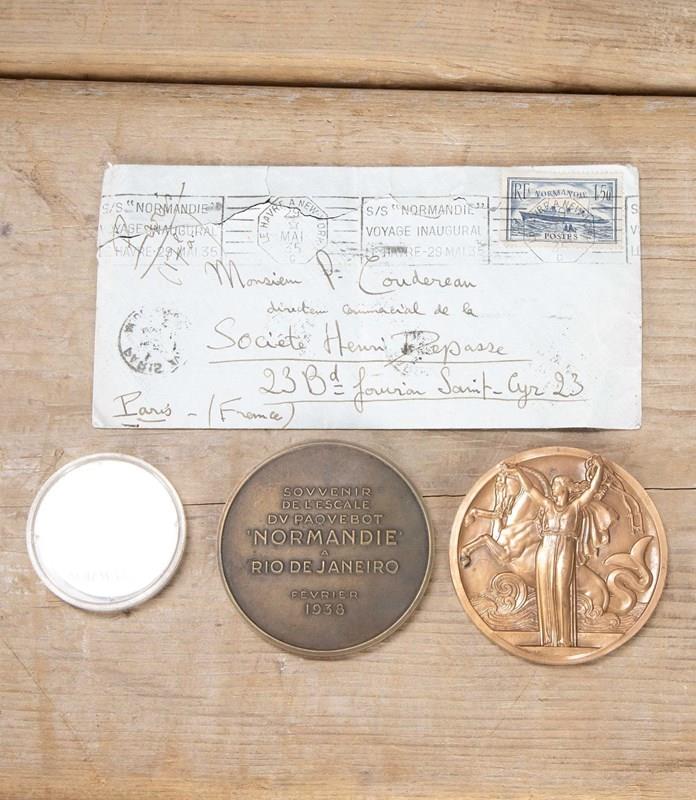 S/S "NORMANDIE"
VOYAGE INAUGURAL
HAVRE-29 MAI 35
LE HAVRE A NEW-YORK
29
MAI
35
S/S "NORMANDIE"
VOYAGE INAUGURAL
HAVRE-29 MAI 35
RF NORMANDIE 1,50
POSTES
Monsieur P. Coudereau
directeur commercial de la
Société Henri Lepasse
23 Bd Gouvion Saint-Cyr 23
Paris - (France)
PARIS
SOVVENIR
DE L'ESCALE
DV PAQVEBOT
'NORMANDIE'
A
RIO DE JANEIRO
FÉVRIER
1938